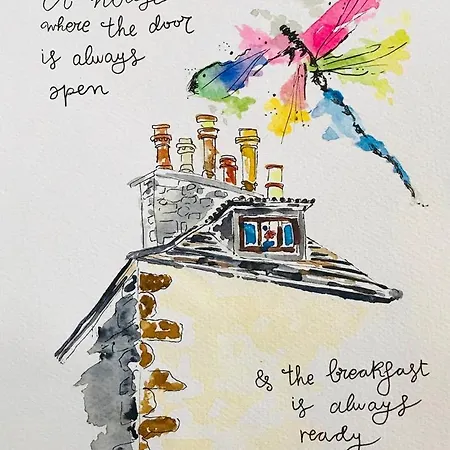 A house
where the door
is always
open
& the breakfast
is always
ready